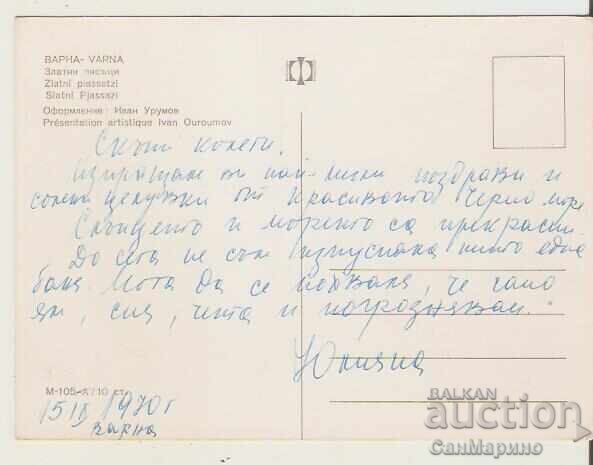 ВАРНА - VARNA
Златни пясъци
Zlatni piassatzi
Slatni Pjassazi
Оформление: Иван Урумов
Présentation artistique Ivan Ouroumov
Скъпи колеги,
Изпращам ви най-нежни поздрави и
солени целувки от красивото Черно море
Слънцето и морето са прекрасни.
До сега не съм изпуснала нито една
баня. Мога да се похваля, че само
ям, спя, чета и погрознявам."
Юлияна
М-105-А/10 ст.
15 IX 1970 г
Варна
BALKAN
auction
СанМарино